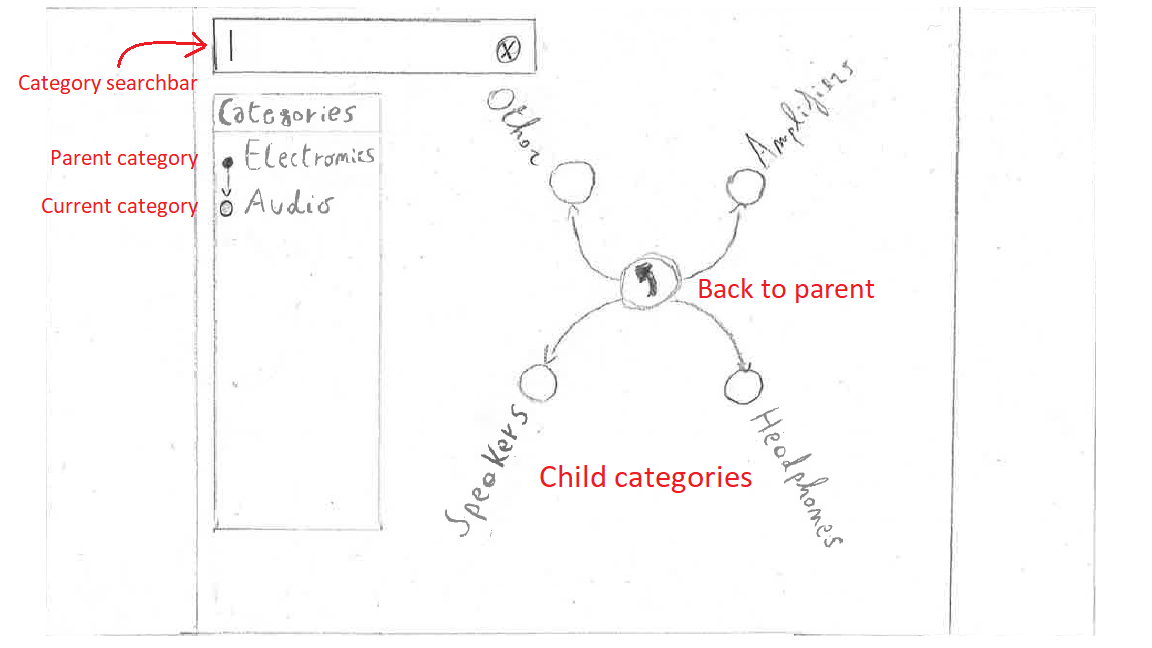 Category searchbar
X
Categories
Parent category
Electronics
Current category
Audio
Other
Amplifiers
Back to parent
Speakers
Headphones
Child categories